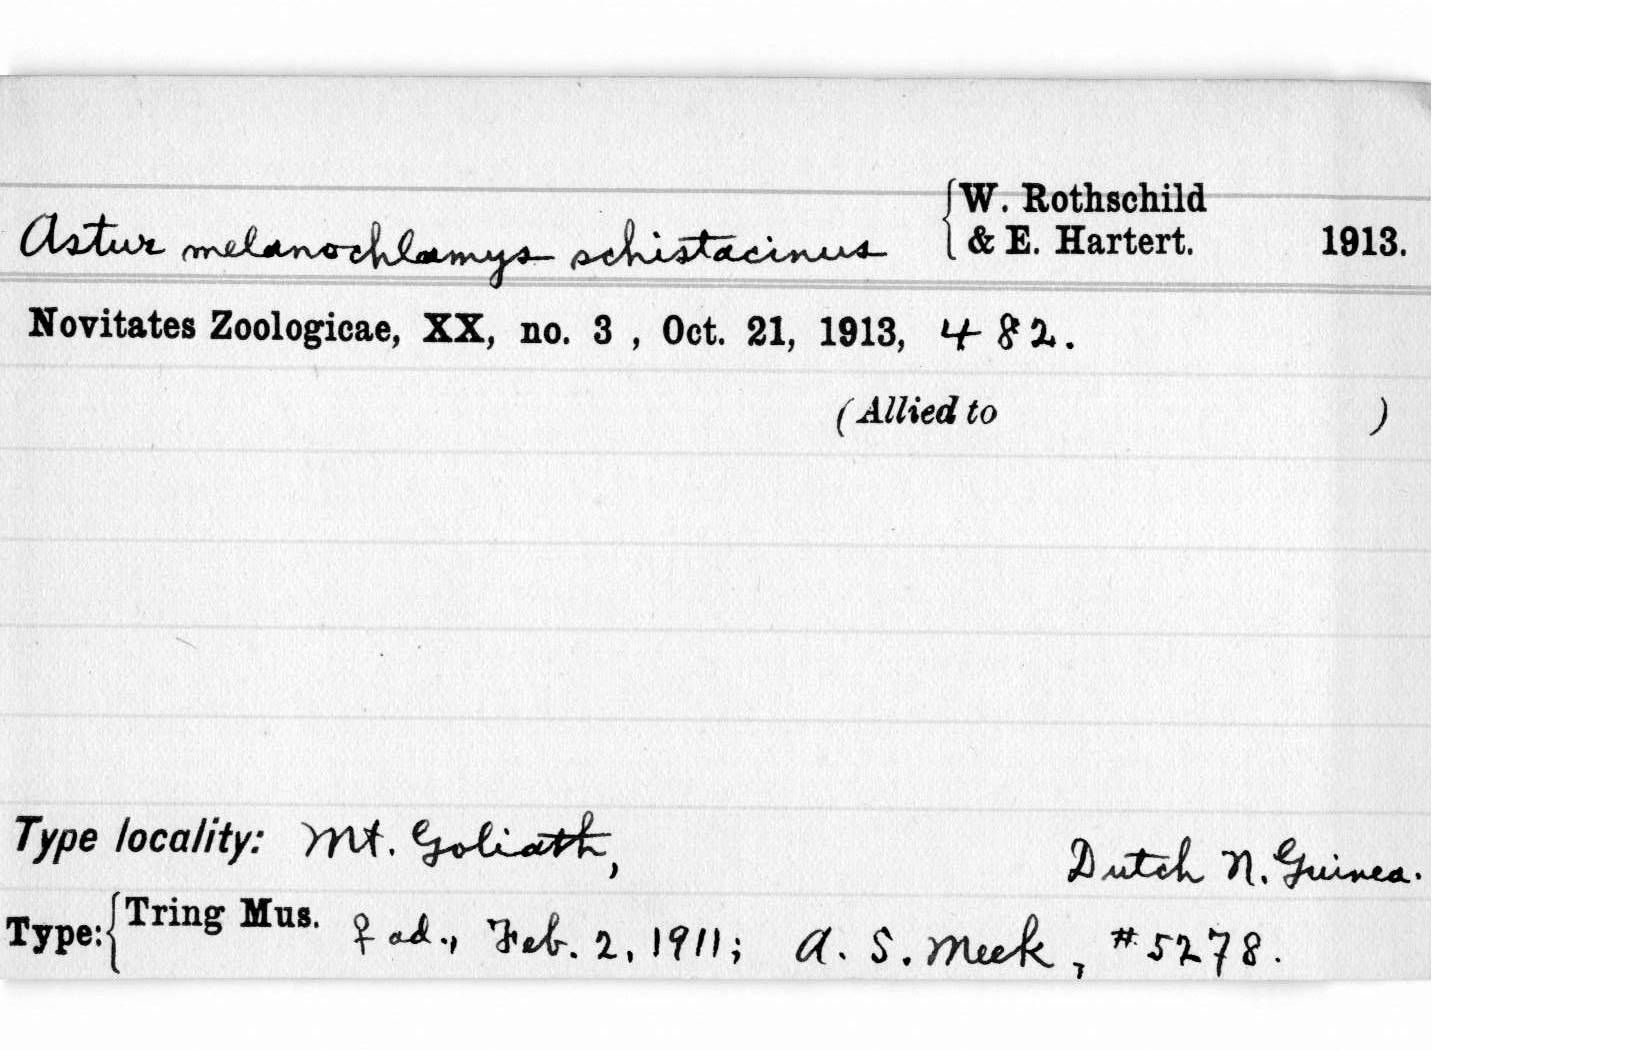 Astur melanochlamys schistacinus { W. Rothschild & E. Hartert. 1913.
Novitates Zoologicae, XX, no. 3 , Oct. 21, 1913, 482.
(Allied to )
Type locality: Mt. Goliath, Dutch N. Guinea.
Type: { Tring Mus. ♀ ad., Feb. 2, 1911; A. S. Meek, #5278.